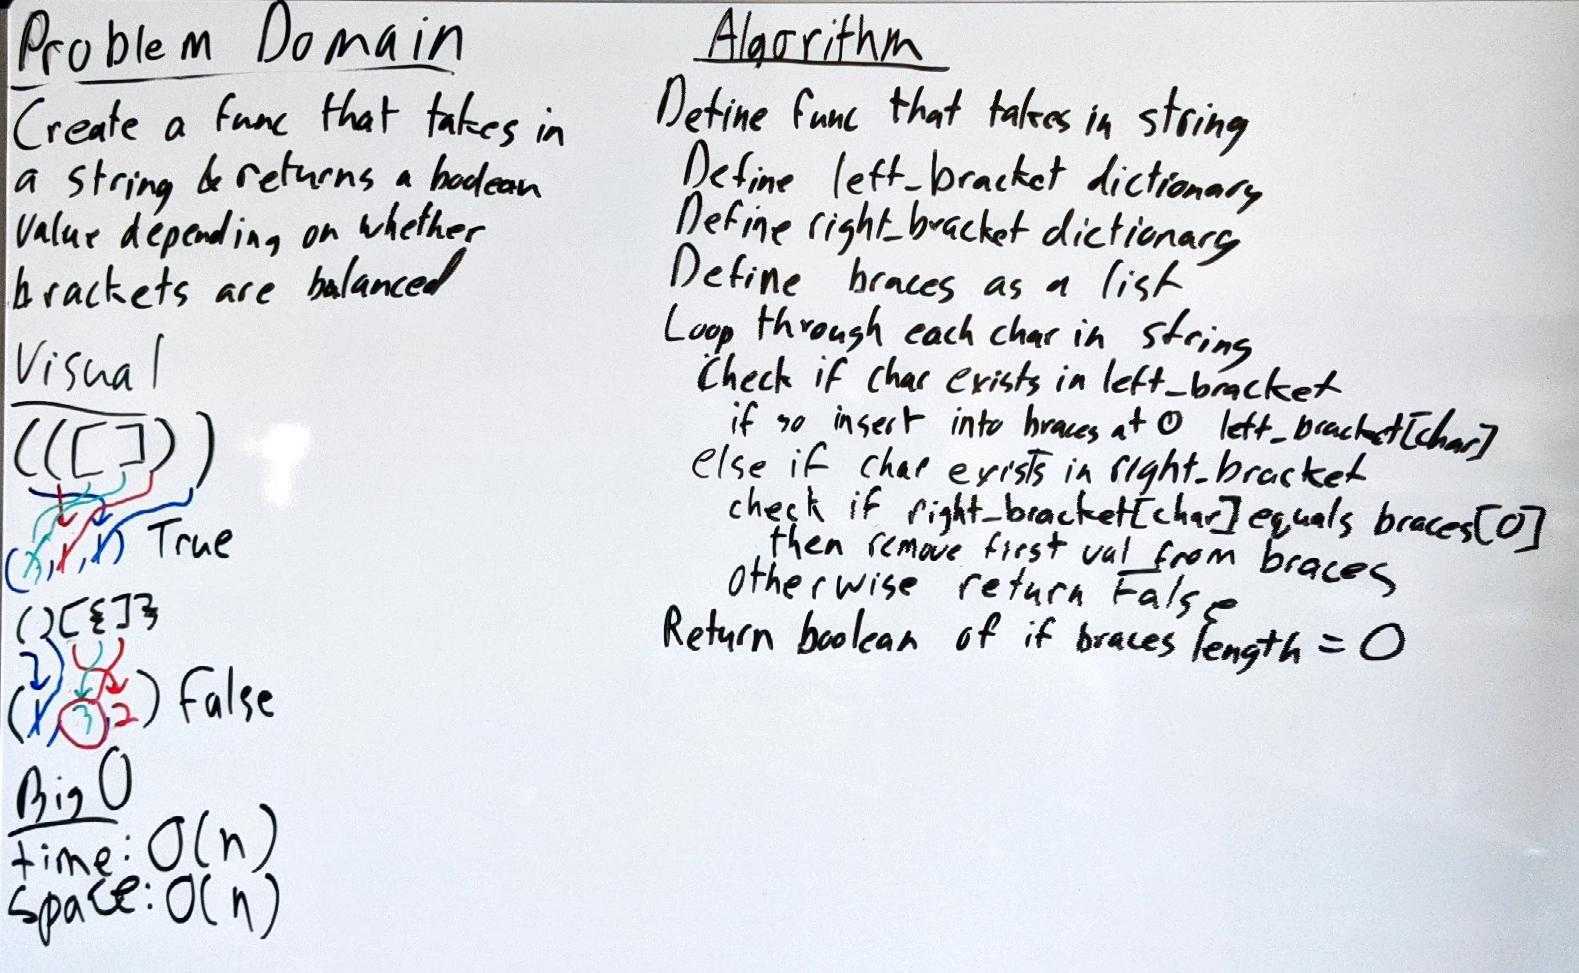 Problem Domain
Create a func that takes in
a string & returns a boolean
value depending on whether
brackets are balanced
Visual
(([]))
True
(){[{]}
False
3, 2
Big O
time: O(n)
space: O(n)
Algorithm
Define func that takes in string
Define left_bracket dictionary
Define right_bracket dictionary
Define braces as a list
Loop through each char in string
Check if char exists in left_bracket
if so insert into braces at 0 left_bracket[char]
else if char exists in right_bracket
check if right_bracket[char] equals braces[0]
then remove first val from braces
otherwise return False
Return boolean of if braces length = 0